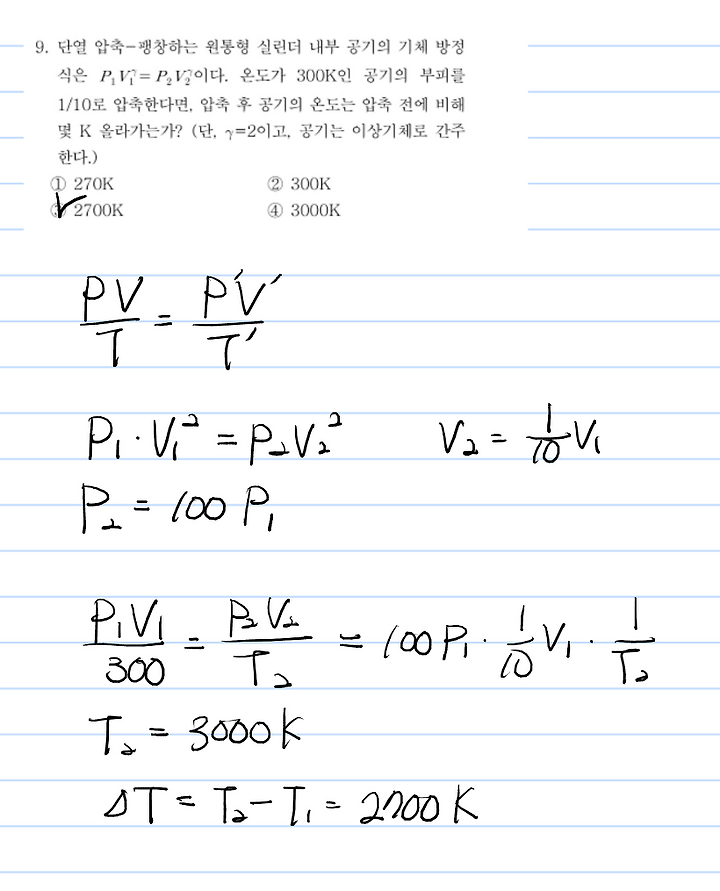 9. 단열 압축-팽창하는 원통형 실린더 내부 공기의 기체 방정
식은 P₁V₁^γ = P₂V₂^γ이다. 온도가 300K인 공기의 부피를
1/10로 압축한다면, 압축 후 공기의 온도는 압축 전에 비해
몇 K 올라가는가? (단, γ=2이고, 공기는 이상기체로 간주
한다.)
① 270K ② 300K
③ 2700K ④ 3000K
PV/T = P′V′/T′
P₁·V₁² = P₂V₂² V₂ = 1/10 V₁
P₂ = 100 P₁
P₁V₁/300 = P₂V₂/T₂ = 100P₁ · 1/10 V₁ · 1/T₂
T₂ = 3000K
ΔT = T₂ - T₁ = 2700K